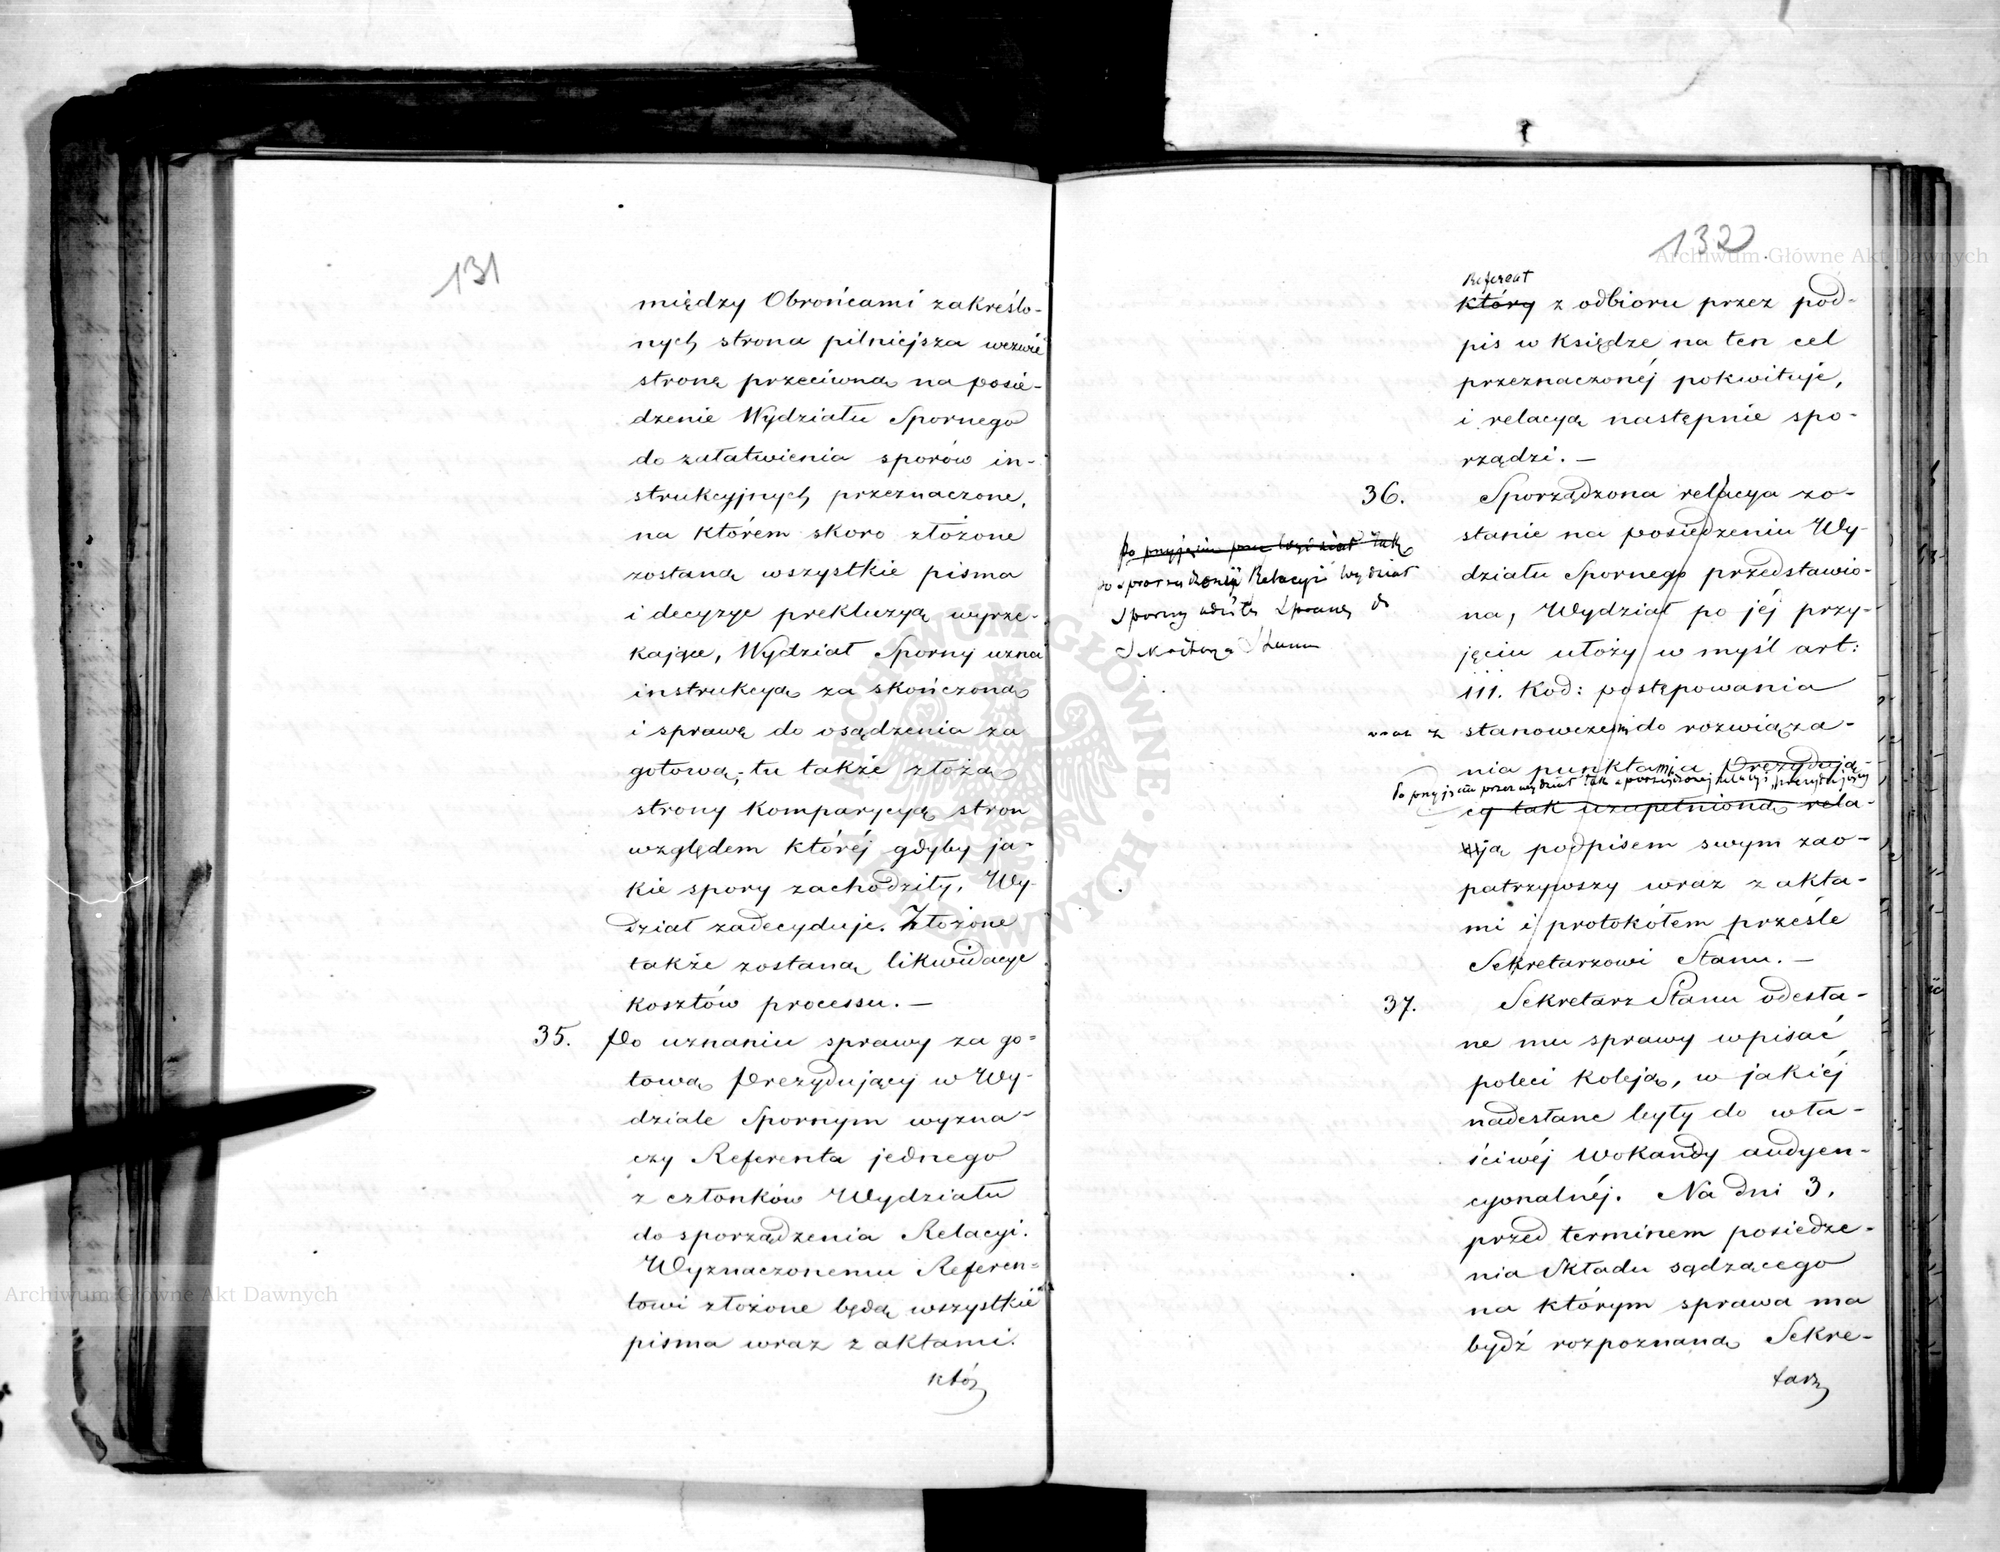 131
między Obrońcami zakreślo-
nych strona pilniejsza wezwie
stronę przeciwną na posie-
dzenie Wydziału Spornego
do załatwienia sporów in-
strukcyjnych przeznaczone,
na którem skoro złożone
zostaną wszystkie pisma
i decyzye prekluzyą wyrze-
kające, Wydział Sporny uzna
instrukcyą za skończoną
i sprawę do osądzenia za
gotową; tu także złożą
strony komparycyą stron
względem któréj gdyby ja-
kie spory zachodziły, Wy-
dział zadecyduje. Złożone
także zostaną likwidacye
kosztów processu. —
35. Po uznaniu sprawy za go-
tową Prezydujący w Wy-
dziale Spornym wyzna-
czy Referenta jednego
z członków Wydziału
do sporządzenia Relacyi.
Wyznaczonemu Referen-
towi złożone będą wszystkie
pisma wraz z aktami.
któ
132
Referent
który z odbioru przez pod-
pis w księdze na ten cel
przeznaczonéj pokwituje,
i relacyą następnie spo-
rządzi. —
36. Sporządzona relacya zo-
stanie na posiedzeniu Wy-
działu Spornego przedstawio-
na, Wydział po jéj przy-
jęciu ułoży w myśl art:
111. Kod: postępowania
wraz z stanowczemi do rozwiąza-
nia punktami Prezydują-
Po przyjęciu przez wydział tak sporządzonej relacyi prezydujący
cy tak uzupełnioną rela-
cyją podpisem swym zao-
patrzywszy wraz z akta-
mi i protokółem prześle
Sekretarzowi Stanu. —
Po przyjęciu przez Wydział tak
sporządzonéj Relacyi Wydział
Sporny odeśle Sprawę do
Sekretarza Stanu
37. Sekretarz Stanu odesła-
ne mu sprawy wpisać
poleci koleją, w jakiéj
nadesłane były do wła-
ściwéj wokandy audyen-
cyonalnéj. Na dni 3,
przed terminem posiedze-
nia Składu sądzącego
na którym sprawa ma
bydź rozpoznaną Sekre-
tarz
Archiwum Główne Akt Dawnych
Archiwum Główne Akt Dawnych
ARCHIWUM GŁÓWNE AKT DAWNYCH